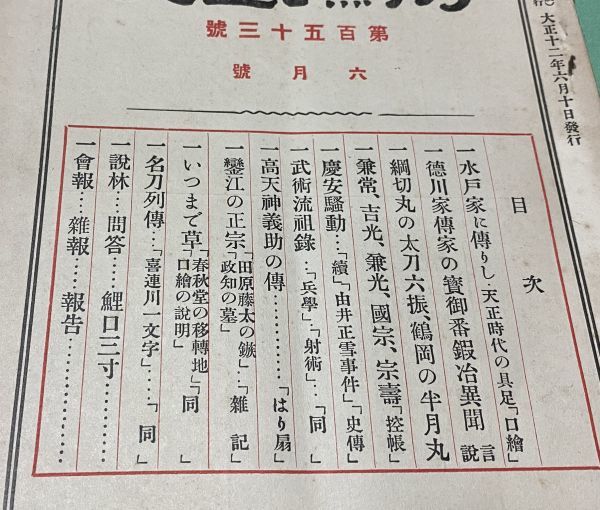 第百五十三號
六月號
大正十二年六月十日發行
目次
一水戶家に傳りし、天正時代の具足「口繪」
一德川家傳家の寶御番鍛冶異聞 言說
一綱切丸の太刀六振、鶴岡の半月丸
一兼常、吉光、兼光、國宗、宗壽「控帳」
一慶安騷動…「續」「由井正雪事件」「史傳」
一武術流祖錄…「兵學」「射術」…「同」
一高天神義助の傳…………「はり扇」
一鑾江の正宗「田原藤太の鏃」「政知の墓」…「雜記」
一いつまで草「春秋堂の移轉地」「口繪の說明」「同」
一名刀列傳…「喜連川一文字」…「同」
一說林…問答…鯉口三寸…………
一會報…雜報…報告…………